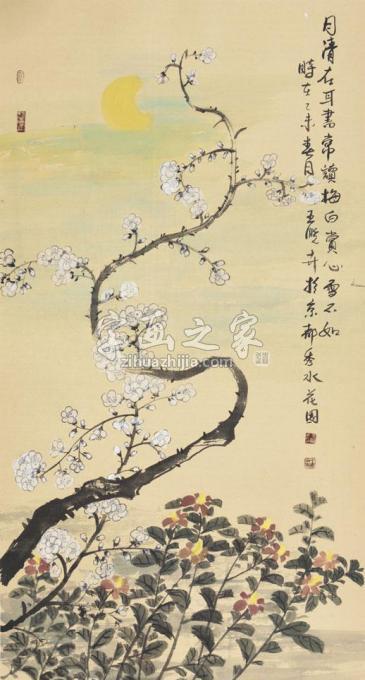 月清在耳書常讀梅白賞心雪不如
時在乙未春月王曉卉於京都秀水花園
字画之家
zihuazhijia.com